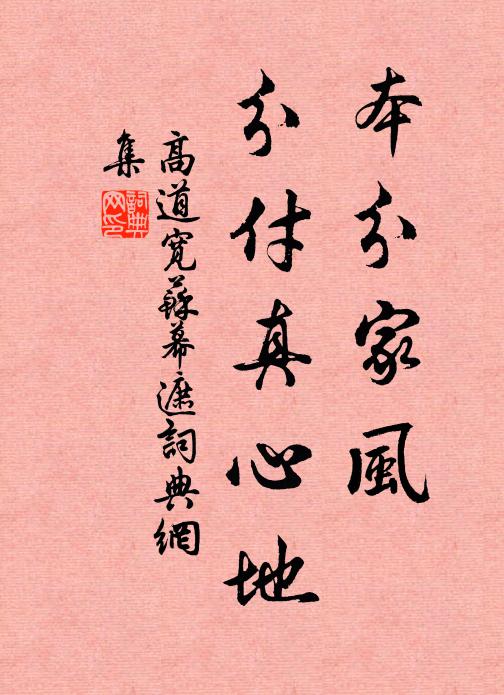 本分家風
分付真心地
高道寬蘇幕遮詞典網
集
詞典
網印